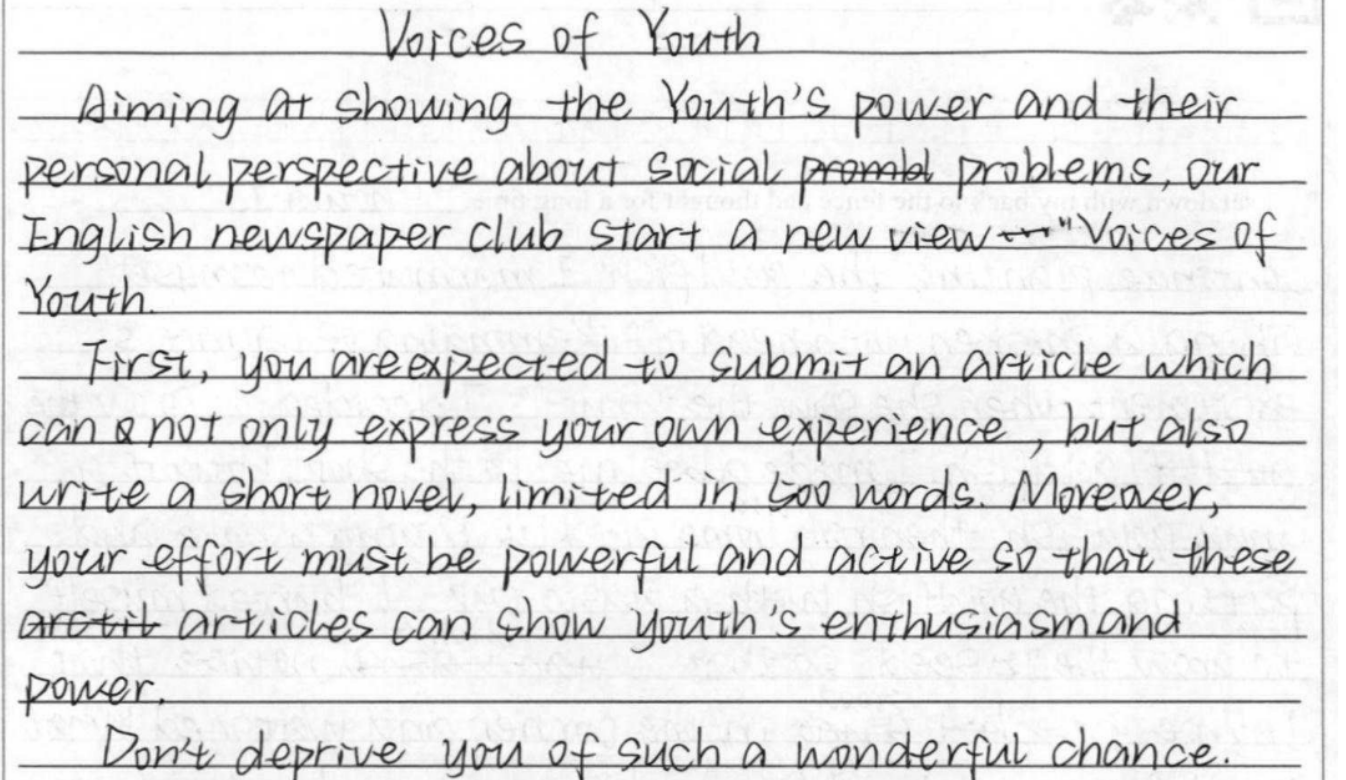 Voices of Youth
Aiming at showing the Youth's power and their
personal perspective about social prombl problems, our
English newspaper club start a new view — "Voices of
Youth.
First, you are expected to submit an article which
can not only express your own experience, but also
write a short novel, limited in 500 words. Moreover,
your effort must be powerful and active so that these
arctil articles can show youth's enthusiasm and
power.
Don't deprive you of such a wonderful chance.